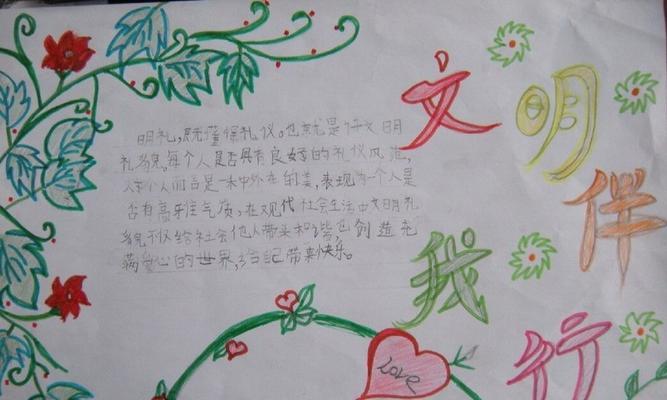 文明
伴
我
行
明礼,既懂得礼仪。也就是讲文明
礼貌。每个人是否具有良好的礼仪风范,
对个人而言是一种外在的美,表现为一个人是
否有高雅气质,在现代社会生活中文明礼
貌不仅给社会他人带来和谐也创造充
满爱心的世界,给自己带来快乐。
Love